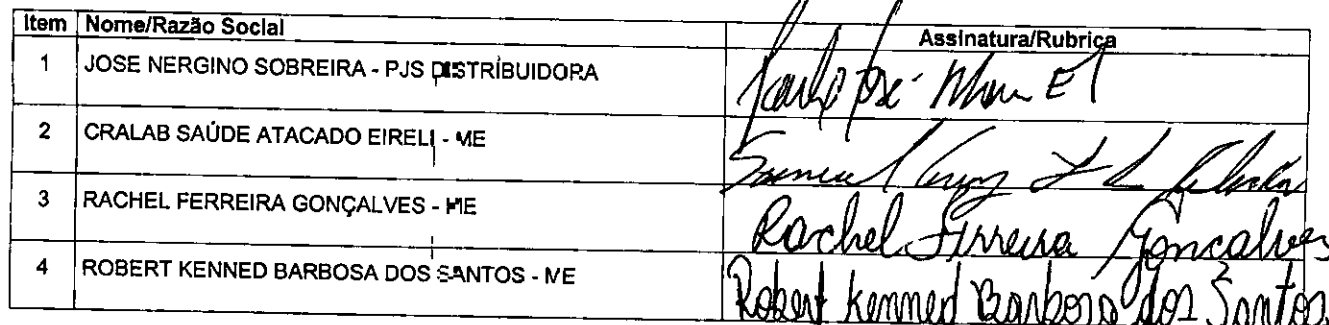 Item Nome/Razão Social Assinatura/Rubrica
1 JOSE NERGINO SOBREIRA - PJS DISTRIBUIDORA
2 CRALAB SAÚDE ATACADO EIRELI - ME Samuel
3 RACHEL FERREIRA GONÇALVES - ME Rachel Ferreira Gonçalves
4 ROBERT KENNED BARBOSA DOS SANTOS - ME Robert Kenned Barbosa dos Santos